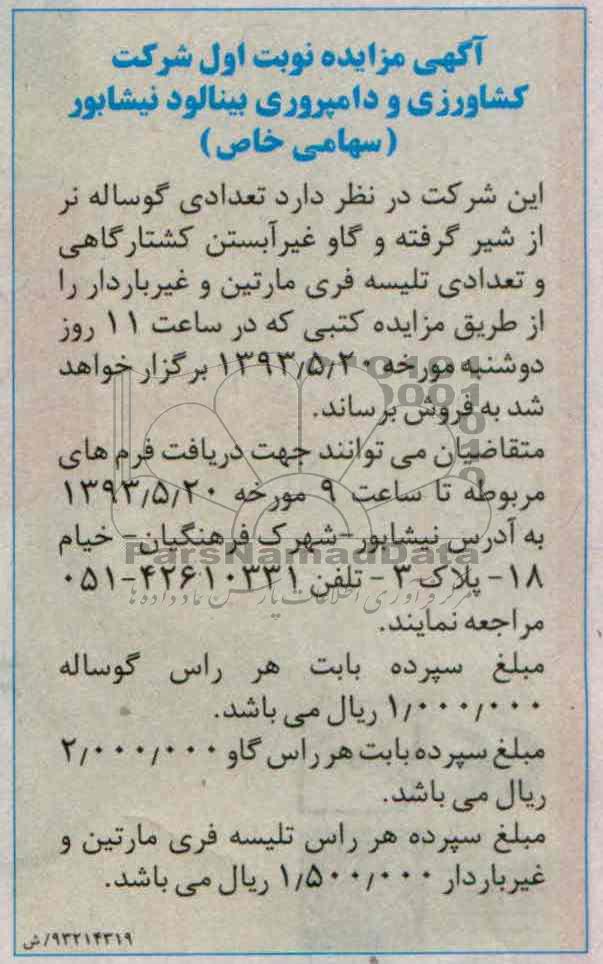 آگهی مزایده نوبت اول شرکت
کشاورزی و دامپروری بینالود نیشابور
(سهامی خاص)
این شرکت در نظر دارد تعدادی گوساله نر
از شیر گرفته و گاو غیرآبستن کشتارگاهی
و تعدادی تلیسه فری مارتین و غیرباردار را
از طریق مزایده کتبی که در ساعت ۱۱ روز
دوشنبه مورخه ۱۳۹۳/۵/۲۰ برگزار خواهد
شد به فروش برساند.
متقاضیان می توانند جهت دریافت فرم های
مربوطه تا ساعت ۹ مورخه ۱۳۹۳/۵/۲۰
به آدرس نیشابور-شهرک فرهنگیان- خیام
۱۸- پلاک ۳ - تلفن ۴۲۶۱۰۳۳۱-۰۵۱
مراجعه نمایند.
مبلغ سپرده بابت هر راس گوساله
۱/۰۰۰/۰۰۰ ریال می باشد.
مبلغ سپرده بابت هر راس گاو ۲/۰۰۰/۰۰۰
ریال می باشد.
مبلغ سپرده هر راس تلیسه فری مارتین و
غیرباردار ۱/۵۰۰/۰۰۰ ریال می باشد.
۹۳۲۱۴۳۱۹/ش
ParsNamadData